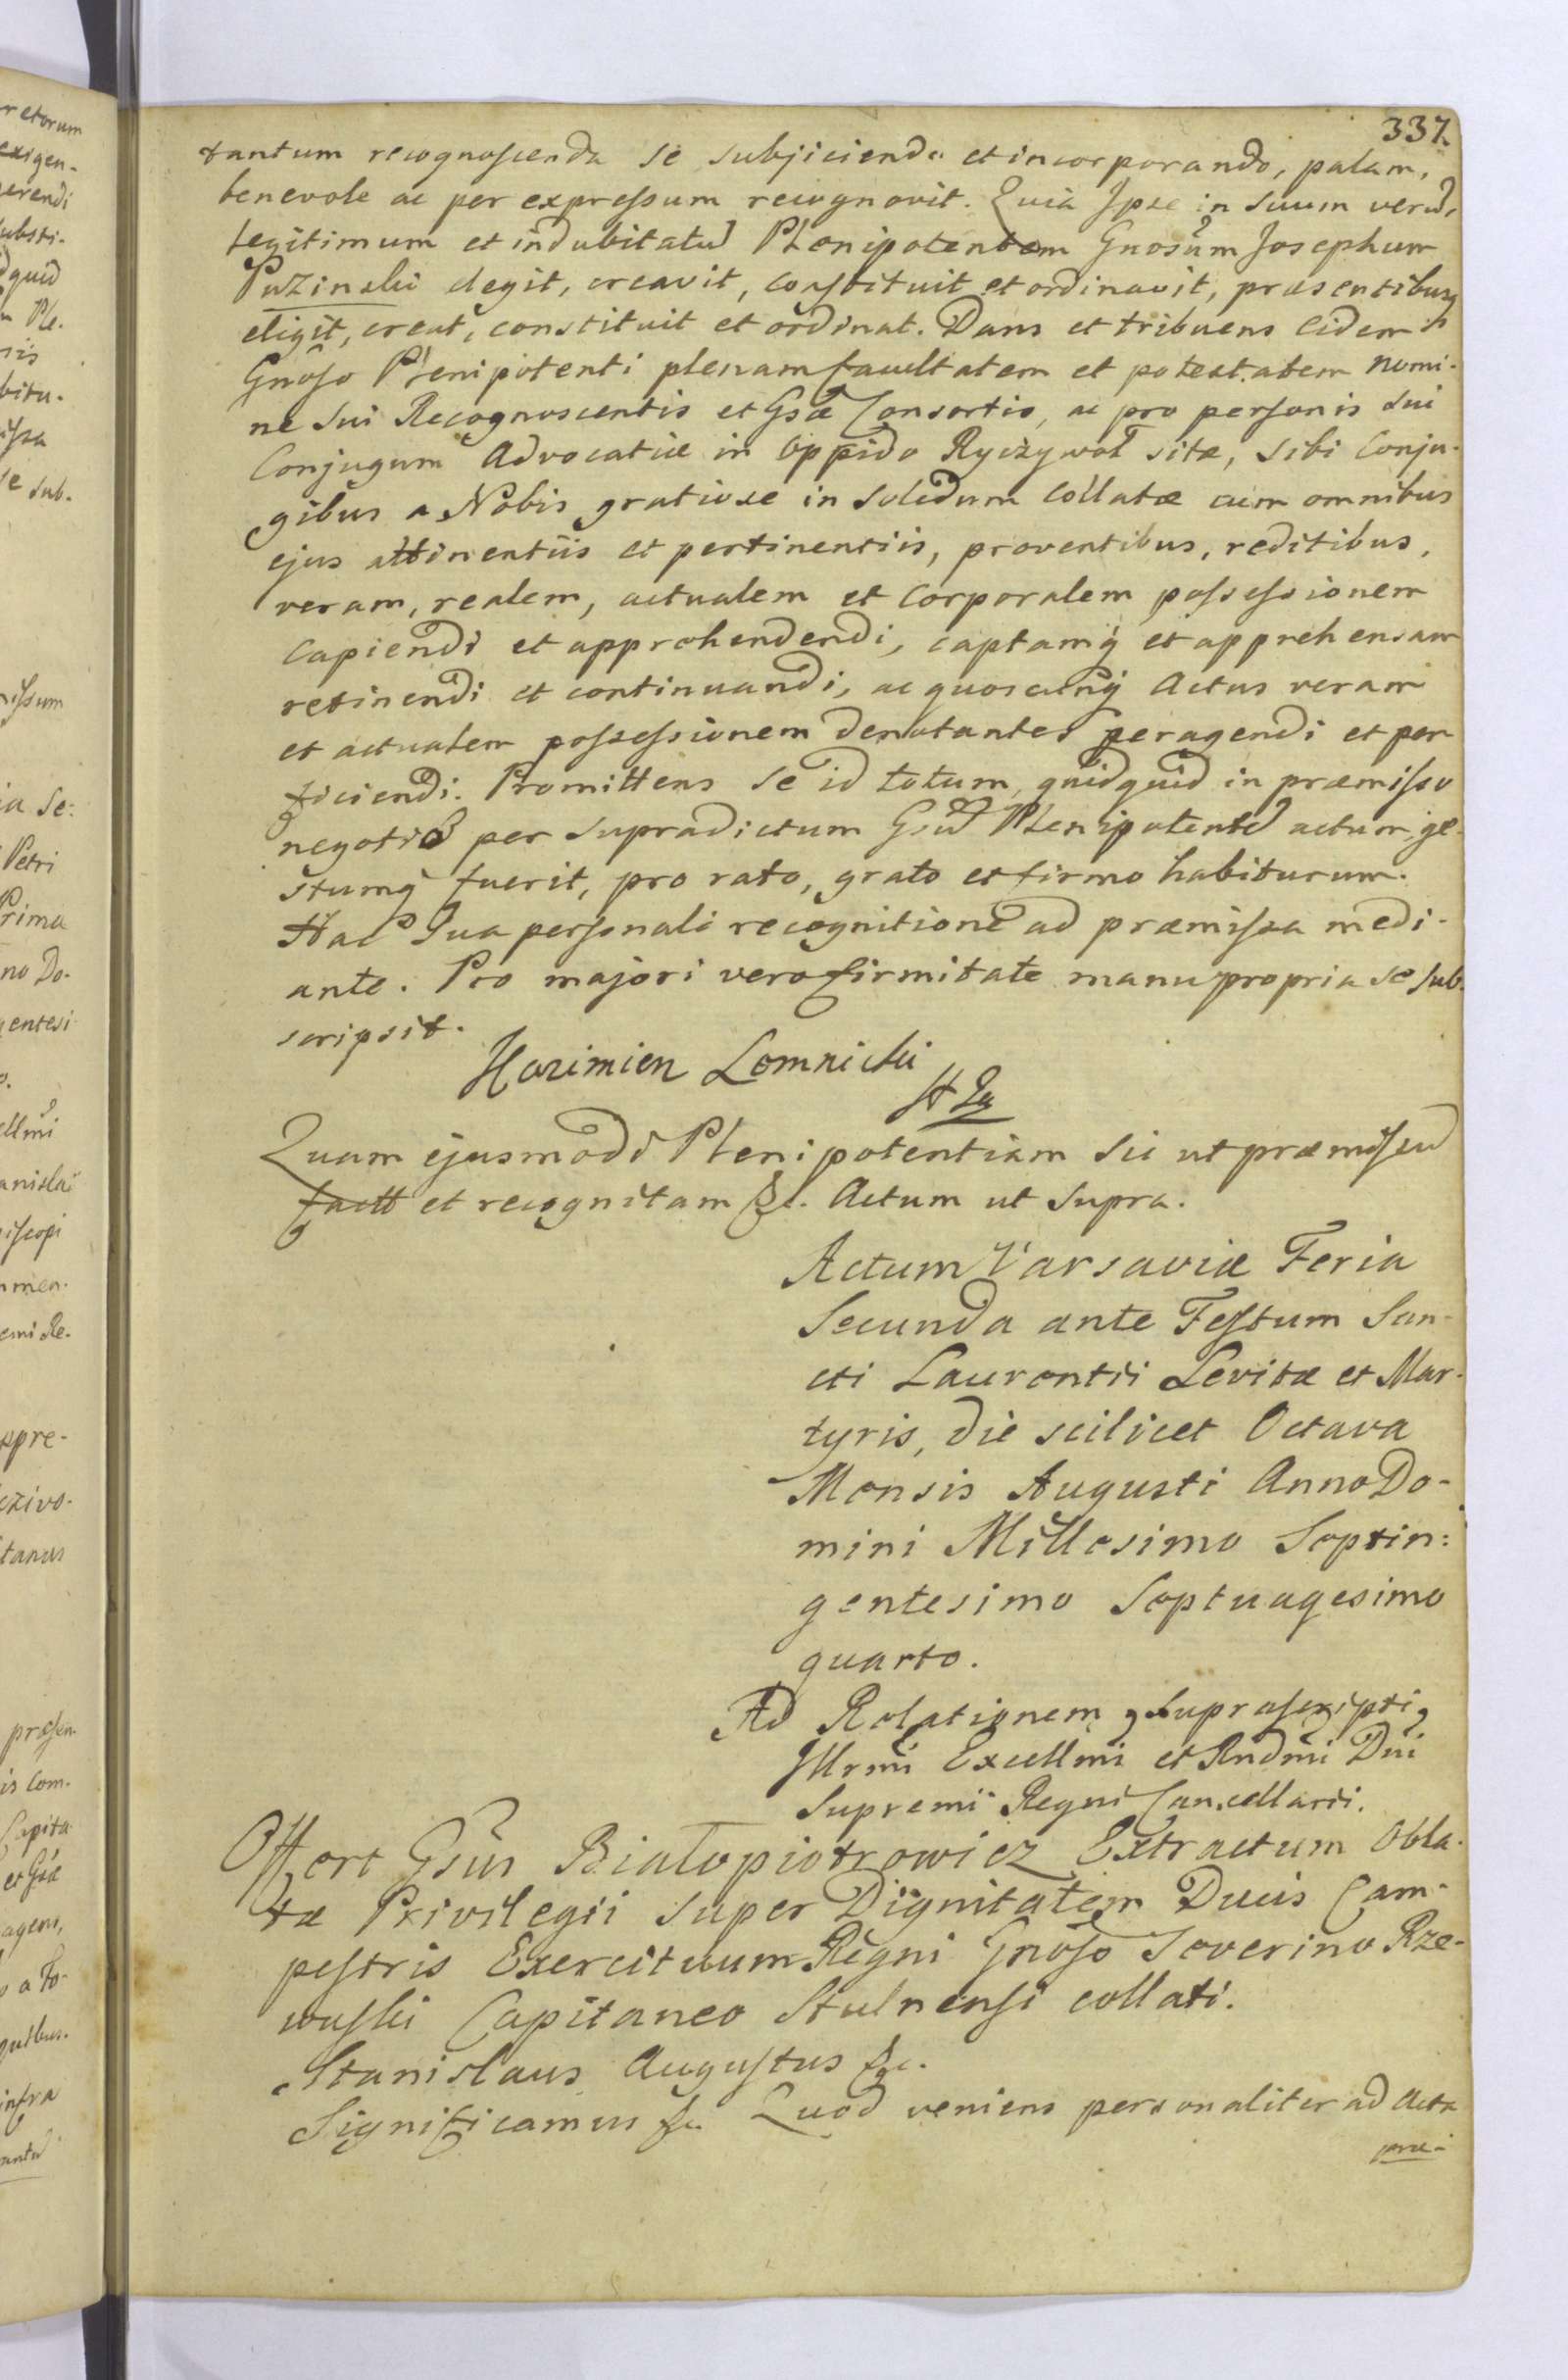 337.
tantum recognoscenda se subjiciendo et incorporando, palam,
benevole ac per expressum recognovit. Quia Ipse in Suum verũ,
legitimum et indubitatũ Plenipotentem Gnosum Josephum
Puzinski elegit, creavit, constituit et ordinavit, præsentibusq
eligit, creat, constituit et ordinat. Dans et tribuens eidem
Gnoso Plenipotenti plenam facultatem et potestatem nomi-
ne Sui Recognoscentis et Gsæ Consortis, ac pro personis Sui
Conjugum Advocatiæ in Oppido Ryczywoł sitæ, sibi Conju-
gibus a Nobis gratiose in solidum collatæ cum omnibus
ejus attinentiis et pertinentiis, proventibus, reditibus,
veram, realem, actualem et corporalem possessionem
capiendi et apprehendendi, captamq̃ et apprehensam
retinendi et continuandi, ac quoscunq̃ Actus veram
et actualem possessionem denotantes peragendi et per
ficiendi. Promittens se id totum, quidquid in præmisso
negotio per supradictum Gsũ Plenipotentẽ actum, ge-
stumq̃ fuerit, pro rato, grato et firmo habiturum.
Hac Sua personali recognitione ad præmissa medi-
ante. Pro majori vero firmitate manu propria se sub-
scripsit.
Kazimierz Lomnicki
Quam ejusmodi Plenipotentiam sic ut præmissũ
et recognitam &c. Actum ut supra.
Actum Varsaviæ Feria
Secunda ante Festum San-
cti Laurentii Levitæ et Mar-
tyris, die scilicet Octava
Mensis Augusti Anno Do-
mini Millesimo Septin:
gentesimo Septuagesimo
quarto.
Ad Relationem suprascripti
Illrmi Excellmi et Rndmi Dni
Supremi Regni Cancellarii.
Offert Gsũs Białopiotrowicz Extractum Obla-
tæ Privilegii super Dignitatem Ducis Cam-
pestris Exercituum Regni Gnoso Severino Rze-
wuski Capitaneo Stulnensi collati.
Stanislaus Augustus &c.
Significamus &c. Quod veniens personaliter ad Acta
præ-